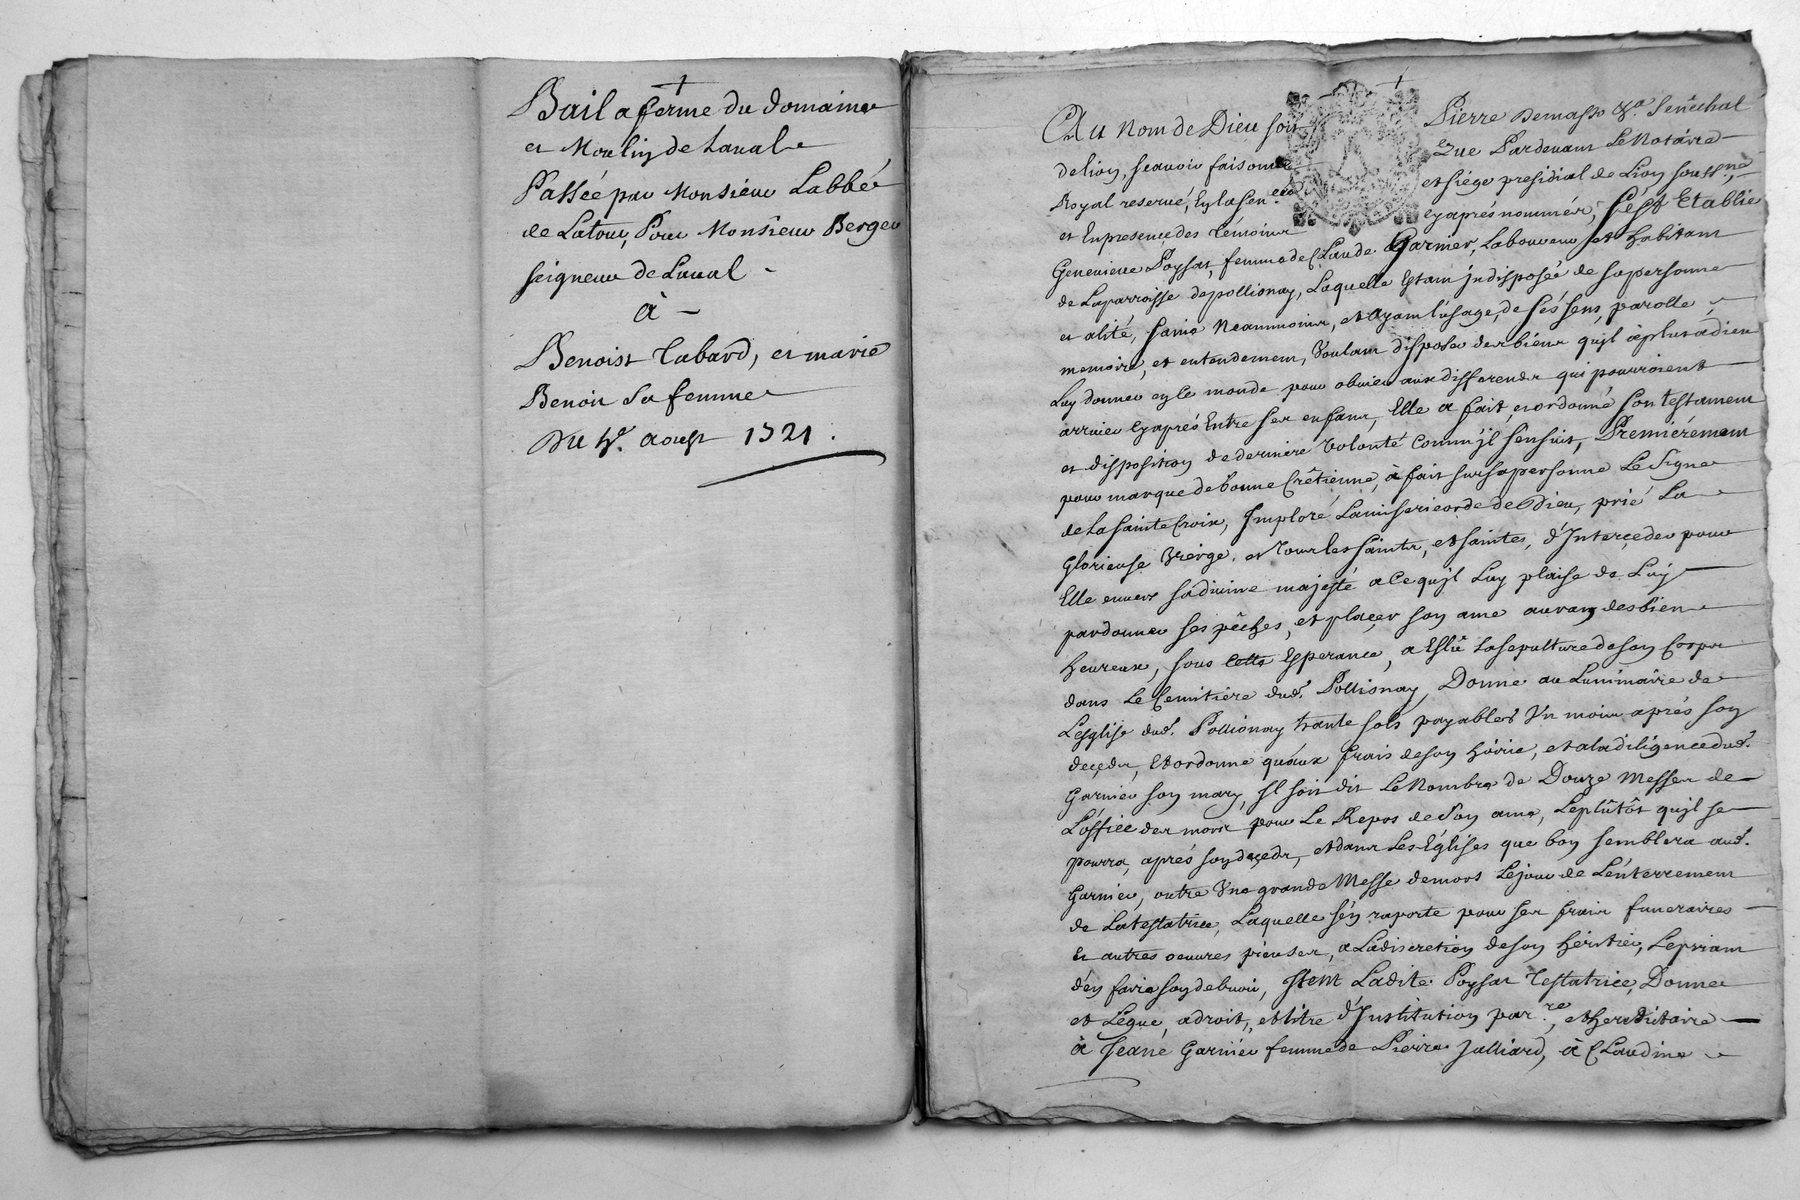 Bail a ferme du domaine
et Moulin de Laual
Passée par Monsieur Labbé
de Latour, Pour Monsieur Berger
seigneur de Laual -
à -
Benoist Tabard, et marie
Benoit Sa femme
Du aoust 1721.
Au Nom de Dieu soit Pierre Demasso Senêchal
de lion, scauoir faisons Que Pardeuant Le Notaire
Royal reserué, En la sen.ée et siége presidial de Lion souss.né
et En presence des témoins cy aprés nommés, s'est Etablie
Geneuieue Poysat, femme de Claude Garnier, Laboureur et habitant
de La parroisse de pollionay, Laquelle Etant Indisposée de sa personne
et alité, saine Neanmoins, et ayant l'usage, de sés sens, parolle,
memoire, et entendement, Voulant disposer des biens qu'jl à plut à dieu
Luy donner en le monde pour obuier aux differends qui pourroient
arriuer cy aprés Entre ses enfans, Elle a fait et ordonné son testament
et disposition de derniere Volonté comm'jl sensuit, Premiérement
pour marque de bonne Crêtienne, à fait sur sa personne Le Signe
de La Sainte Croix, Imploré La misericorde de Dieu, prié La
Glorieuse Vierge, et Tous les saints, et saintes, d'Interçeder pour
Elle enuers sa diuine majesté a Ce qu'jl Luy plaise de Luy
pardonner ses pêches, et plaçer son ame au rang des bien
heureux, sous Cette Esperance, a Eslû La sepulture de son Corps
dans Le Cemitiére dud. Pollionay, Donne au Luminaire de
L'esglise dud. Pollionay trante sols payables Vn mois aprés son
deçeds, Et ordonne qu'aux frais de son hoirie, et a la diligence dud.
Garnier son mary, Il soit dit Le Nombre de Douze Messes de
L'office des morts pour Le Repos de Son ame, Le plûtôt qu'jl se
pourra, aprés son deçeds, et dans Les Églises que bon semblera aud.
Garnier, outre Vne grande Messe de mors Le jour de L'enterrement
de La testatrice, Laquelle s'en raporte pour ses frais funeraires
Et autres oeuures pieuses, a La discretion de son heritier, Le priant
d'en faire son debuoir, Item Ladite Poysat Testatrice, Donne
et Légue, a droit, et titre d'Institution par.re, et hereditaire
à Jeane Garnier femme de Pierre Julliard, à Claudine